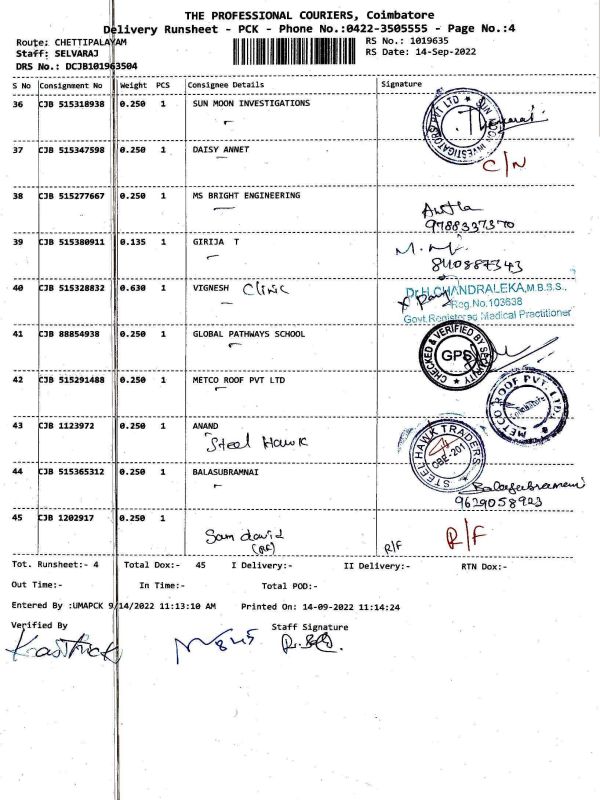 THE PROFESSIONAL COURIERS, Coimbatore
Delivery Runsheet - PCK - Phone No.:0422-3505555 - Page No.:4
Route: CHETTIPALAYAM
Staff: SELVARAJ
DRS No.: DCJB101963504
RS No.: 1019635
RS Date: 14-Sep-2022
S No Consignment No Weight PCS Consignee Details Signature
36 CJB 515318938 0.250 1 SUN MOON INVESTIGATIONS
37 CJB 515347598 0.250 1 DAISY ANNET C/N
38 CJB 515277667 0.250 1 MS BRIGHT ENGINEERING
9788337370
39 CJB 515380911 0.135 1 GIRIJA T
840887343
40 CJB 515328832 0.630 1 VIGNESH Clinic
Dr.H.CHANDRALEKA,M.B.B.S.,
X Ray Reg.No.103638
Govt.Registered Medical Practitioner
41 CJB 88854938 0.250 1 GLOBAL PATHWAYS SCHOOL
CHECKED & VERIFIED BY SECURITY
GPS
42 CJB 515291488 0.250 1 METCO ROOF PVT LTD
METCO ROOF PVT. LTD.
43 CJB 1123972 0.250 1 ANAND
Steel Hawk
STEEL HAWK TRADERS
44 CJB 515365312 0.250 1 BALASUBRAMNAI
Balasubramani
9629058923
45 CJB 1202917 0.250 1
Sam david
(RF) R/F R/F
Tot. Runsheet:- 4 Total Dox:- 45 I Delivery:- II Delivery:- RTN Dox:-
Out Time:- In Time:- Total POD:-
Entered By :UMAPCK 9/14/2022 11:13:10 AM Printed On: 14-09-2022 11:14:24
Verified By Staff Signature